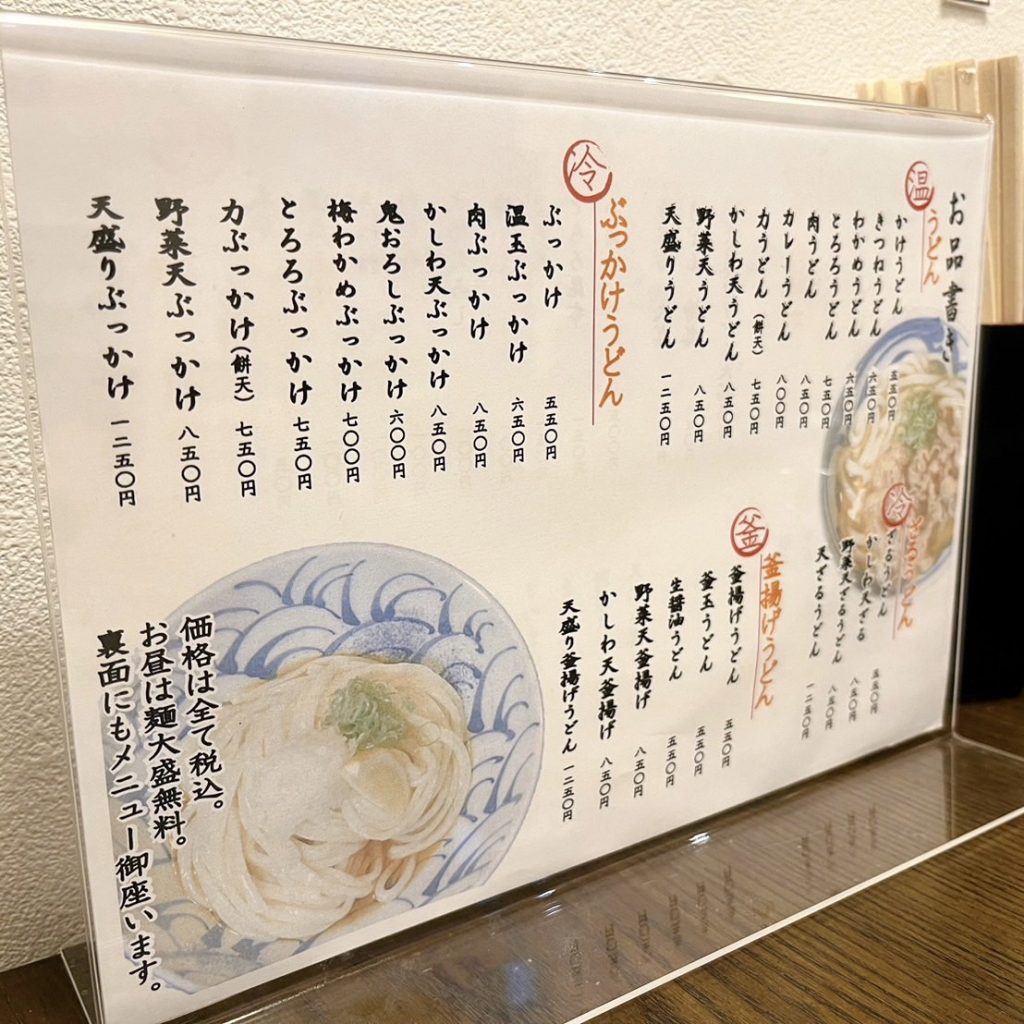 お品書き
温 うどん
かけうどん 五五〇円
きつねうどん 六五〇円
わかめうどん 六五〇円
とろろうどん 七五〇円
肉うどん 八五〇円
カレーうどん 八〇〇円
力うどん(餅天) 七五〇円
かしわ天うどん 八五〇円
野菜天うどん 八五〇円
天盛りうどん 一二五〇円
冷 ぶっかけうどん
ぶっかけ 五五〇円
温玉ぶっかけ 六五〇円
肉ぶっかけ 八五〇円
かしわ天ぶっかけ 八五〇円
鬼おろしぶっかけ 六〇〇円
梅わかめぶっかけ 七〇〇円
とろろぶっかけ 七五〇円
力ぶっかけ(餅天) 七五〇円
野菜天ぶっかけ 八五〇円
天盛りぶっかけ 一二五〇円
冷 ざるうどん
ざるうどん 五五〇円
かしわ天ざる 八五〇円
野菜天ざるうどん 八五〇円
天ざるうどん 一二五〇円
釜 釜揚げうどん
釜揚げうどん 五五〇円
釜玉うどん 五五〇円
生醤油うどん 五五〇円
野菜天釜揚げ 八五〇円
かしわ天釜揚げ 八五〇円
天盛り釜揚げうどん 一二五〇円
価格は全て税込。
お昼は麺大盛無料。
裏面にもメニュー御座います。